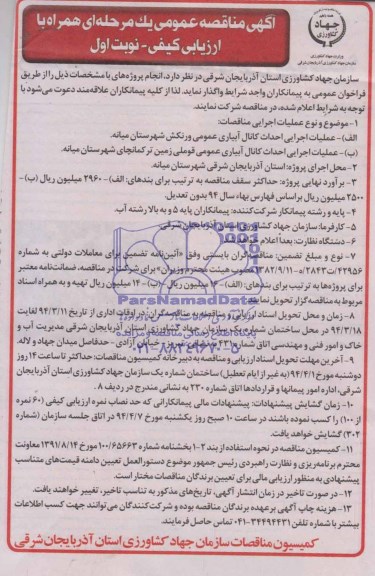 جهاد
کشاورزی
وزارت جهاد کشاورزی
سازمان جهاد کشاورزی آذربایجان شرقی
آگهی مناقصه عمومی یك مرحله‌ای همراه با
ارزیابی کیفی - نوبت اول
سازمان جهاد کشاورزی استان آذربایجان شرقی در نظر دارد، انجام پروژه‌های با مشخصات ذیل را از طریق
فراخوان عمومی به پیمانکاران واجد شرایط واگذار نماید. لذا از کلیه پیمانکاران علاقه‌مند دعوت می‌شود با
توجه به شرایط اعلام شده، در مناقصه شرکت نمایند.
۱- موضوع و نوع عملیات اجرایی مناقصات:
الف)- عملیات اجرایی احداث کانال آبیاری عمومی ورنکش شهرستان میانه.
(ب)- عملیات اجرایی احداث کانال آبیاری عمومی قوملی زمین ترکمانچای شهرستان میانه.
۲- محل اجرای پروژه: استان آذربایجان شرقی شهرستان میانه.
۳- برآورد نهایی پروژه: حداکثر سقف مناقصه به ترتیب برای بندهای: (الف)- ۲۹۶۰ میلیون ریال (ب)-
۲۵۰۰ میلیون ریال براساس فهارس بهاء سال ۹۴ بدون تعدیل.
۴- پایه و رشته پیمانکار شرکت‌کننده: پیمانکاران پایه ۵ و به بالا رشته آب.
۵- کارفرما: سازمان جهاد کشاورزی استان آذربایجان شرقی.
۶- دستگاه نظارت: بعداً اعلام
۷- نوع و مبلغ تضمین: مناقصه‌گران بایستی وفق «آئین‌نامه تضمین برای معاملات دولتی به شماره
۴۲۹۵۶/ت۲۸۴۹۳ه-۱۳۸۲/۹/۱۱ مصوب هیئت محترم وزیران» برای شرکت در مناقصه، ضمانت‌نامه معتبر
برای پروژه‌ها به ترتیب برای بندهای: (الف)- میلیون ریال (ب)- ۱۴۰ میلیون ریال تهیه و به همراه اسناد
مربوط به مناقصه‌گزار تحویل نمایند.
۸- زمان و محل تحویل اسناد ارزیابی و مناقصه به مناقصه‌گران: در اوقات اداری از تاریخ ۹۴/۳/۱۱ لغایت
۹۴/۳/۱۸ در محل ساختمان شماره یک سازمان جهاد کشاورزی استان آذربایجان شرقی مدیریت آب و
خاک و امور فنی و مهندسی اتاق شماره ۴۳۱ به نشانی تبریز - خیابان آزادی - حدفاصل میدان جهاد و لاله.
۹- آخرین مهلت تحویل اسناد ارزیابی و مناقصه به دبیرخانه کمیسیون مناقصات: حداکثر تا ساعت ۱۴ روز
دوشنبه مورخ ۹۴/۴/۱ (به غیر از ایام تعطیل) ساختمان شماره یک سازمان جهاد کشاورزی استان آذربایجان
شرقی، اداره امور پیمانها و قراردادها اتاق شماره ۲۳۰ به نشانی مندرج در ردیف ۸.
۱۰- زمان گشایش پیشنهادات: پیشنهادات مالی پیمانکارانی که حد نصاب نمره ارزیابی کیفی (۶۰ نمره
از ۱۰۰) را کسب نموده باشند در ساعت ۱۰ صبح روز یکشنبه مورخ ۹۴/۴/۷ در اتاق جلسه سازمان (شماره
۳۰۲) گشایش خواهد یافت.
۱۱- کمیسیون مناقصه در نحوه استفاده از بند ۲-۱ بخشنامه شماره ۱۰۰/۶۵۶۶۳ مورخ ۱۳۹۱/۸/۱۴ معاونت
محترم برنامه‌ریزی و نظارت راهبردی رئیس جمهور موضوع دستورالعمل تعیین دامنه قیمت‌های متناسب
پیشنهادی به منظور ارزیابی مالی برای تعیین برندگان مناقصات مختار است.
۱۲- در صورت تاخیر در زمان انتشار آگهی، تاریخ‌های مذکور به تناسب تاخیر، تغییر خواهند یافت.
۱۳- هزینه چاپ آگهی برعهده برندگان مناقصه بوده و شرکت‌کنندگان می‌توانند جهت کسب اطلاعات
بیشتر با شماره تلفن ۳۴۴۹۴۴۳۱-۰۴۱ تماس حاصل فرمایند.
کمیسیون مناقصات سازمان جهاد کشاورزی استان آذربایجان شرقی
ParsNamadData
پایگاه اطلاع رسانی مناقصه و مزایده
۰۲۱-۸۸۳۴۹۶۷۰-۵